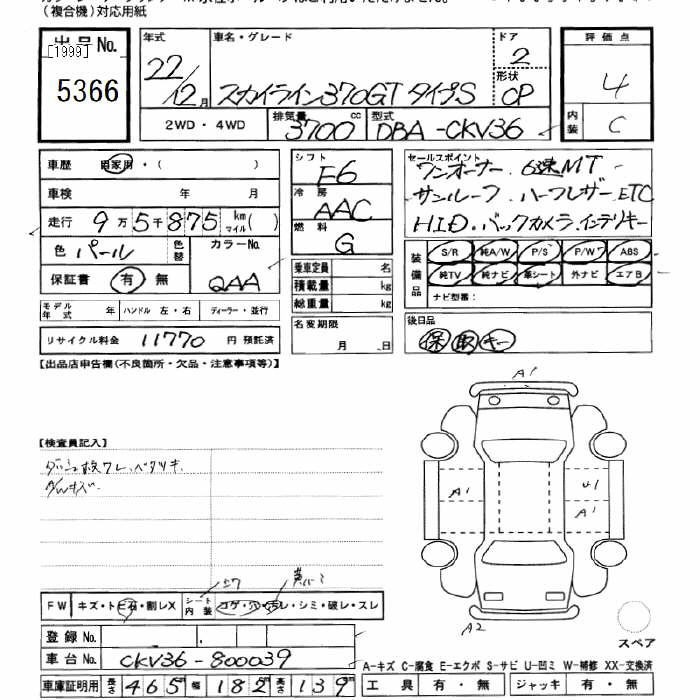 （複合機）対応用紙
出品No.
[1999]
5366
年式 22/12月
車名・グレード スカイライン370GT タイプS
ドア 2
形状 CP
評価点 4
内装 C
2WD・4WD
排気量 3700 cc
型式 DBA-CKV36
車歴 自家用・( )
車検 年 月
走行 9万5千875 km マイル( )
色 パール
色替
カラーNo. QAA
保証書 有 無
モデル年式 ハンドル 左・右 ディーラー・並行
リサイクル料金 11770 円 預託済
シフト F6
冷房 AAC
燃料 G
乗車定員 名
積載量 kg
総重量 kg
名変期限 月 日
セールスポイント
ワンオーナー 6速MT
サンルーフ、ハーフレザー、ETC
H.I.D・バックカメラ、インテリキー
装備品
S/R 純A/W P/S P/W ABS
純TV 純ナビ 革シート 外ナビ エアB
ナビ型番：
後日品
保 取 キー
【出品店申告欄(不良箇所・欠品・注意事項等)】
【検査員記入】
A1
A1
U1
A1
A2
スペア
FW キズ・トビ石・割レX
シート内装 コゲ・穴・スレ・シミ・破レ・スレ
登録No.
車台No. CKV36-800039
A-キズ C-腐食 E-エクボ S-サビ U-凹ミ W-補修 XX-交換済
車庫証明用 長さ 465 幅 182 高さ 139
工具 有・無 ジャッキ 有・無